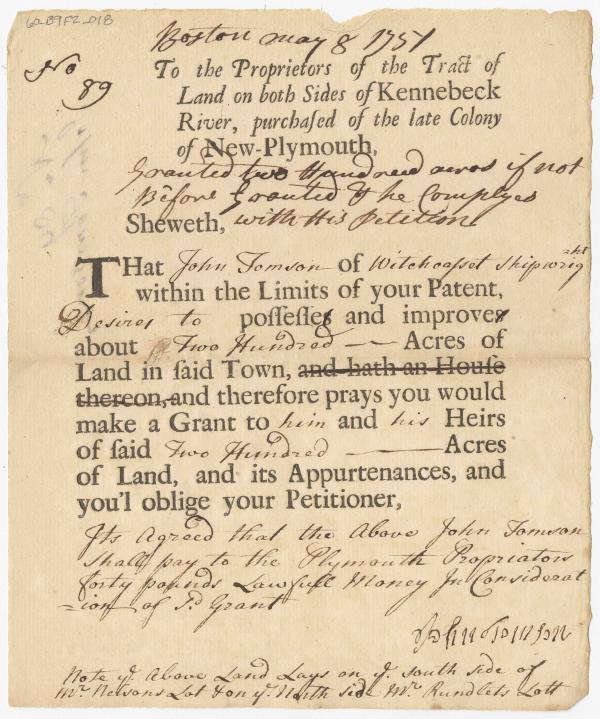 62-B9F2-018
Boston may 8 1757
No
89
To the Proprietors of the Tract of
Land on both Sides of Kennebeck
River, purchaſed of the late Colony
of New-Plymouth,
Granted two Hundreed acros if not
Before Granted & he Complyes
Sheweth, with His Petition
THat John Tomson of Witchcasset Shipwright
within the Limits of your Patent,
Desires to poſſeſſes and improves
about Two Hundred Acres of
Land in ſaid Town, and hath an Houſe
thereon, and therefore prays you would
make a Grant to him and his Heirs
of ſaid Two Hundred Acres
of Land, and its Appurtenances, and
you'l oblige your Petitioner,
Its Agreed that the Above John Tomson
Shall pay to the Plymouth Propriators
forty pounds Lawfull Money In Considerat
-ion of Sd Grant
John Tomson
Note ye Above Land Lays on ye south side of
Mr Nelsons Lot & on ye North side Mr Rundlets Lott